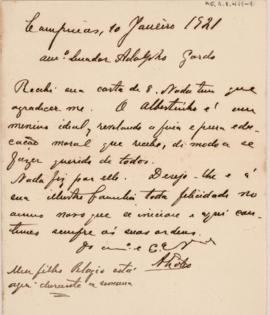 Campinas, 10 Janeiro 1921
am.º Senador Adolpho Gordo
Recebi sua carta de 8. Nada tem que
agradecer me. O Albertinho é um
menino ideal, revelando a fina e pura edu-
cação moral que recebeu, de modo a se
fazer querido de todos.
Nada fiz por elle. Desejo-lhe e á
sua illustre familia toda felicidade no
anno novo que se inicia e aqui con-
tinuo sempre ás suas ordens.
Do am.º e C.
Meu filho Pelagio está
aqui durante a semana